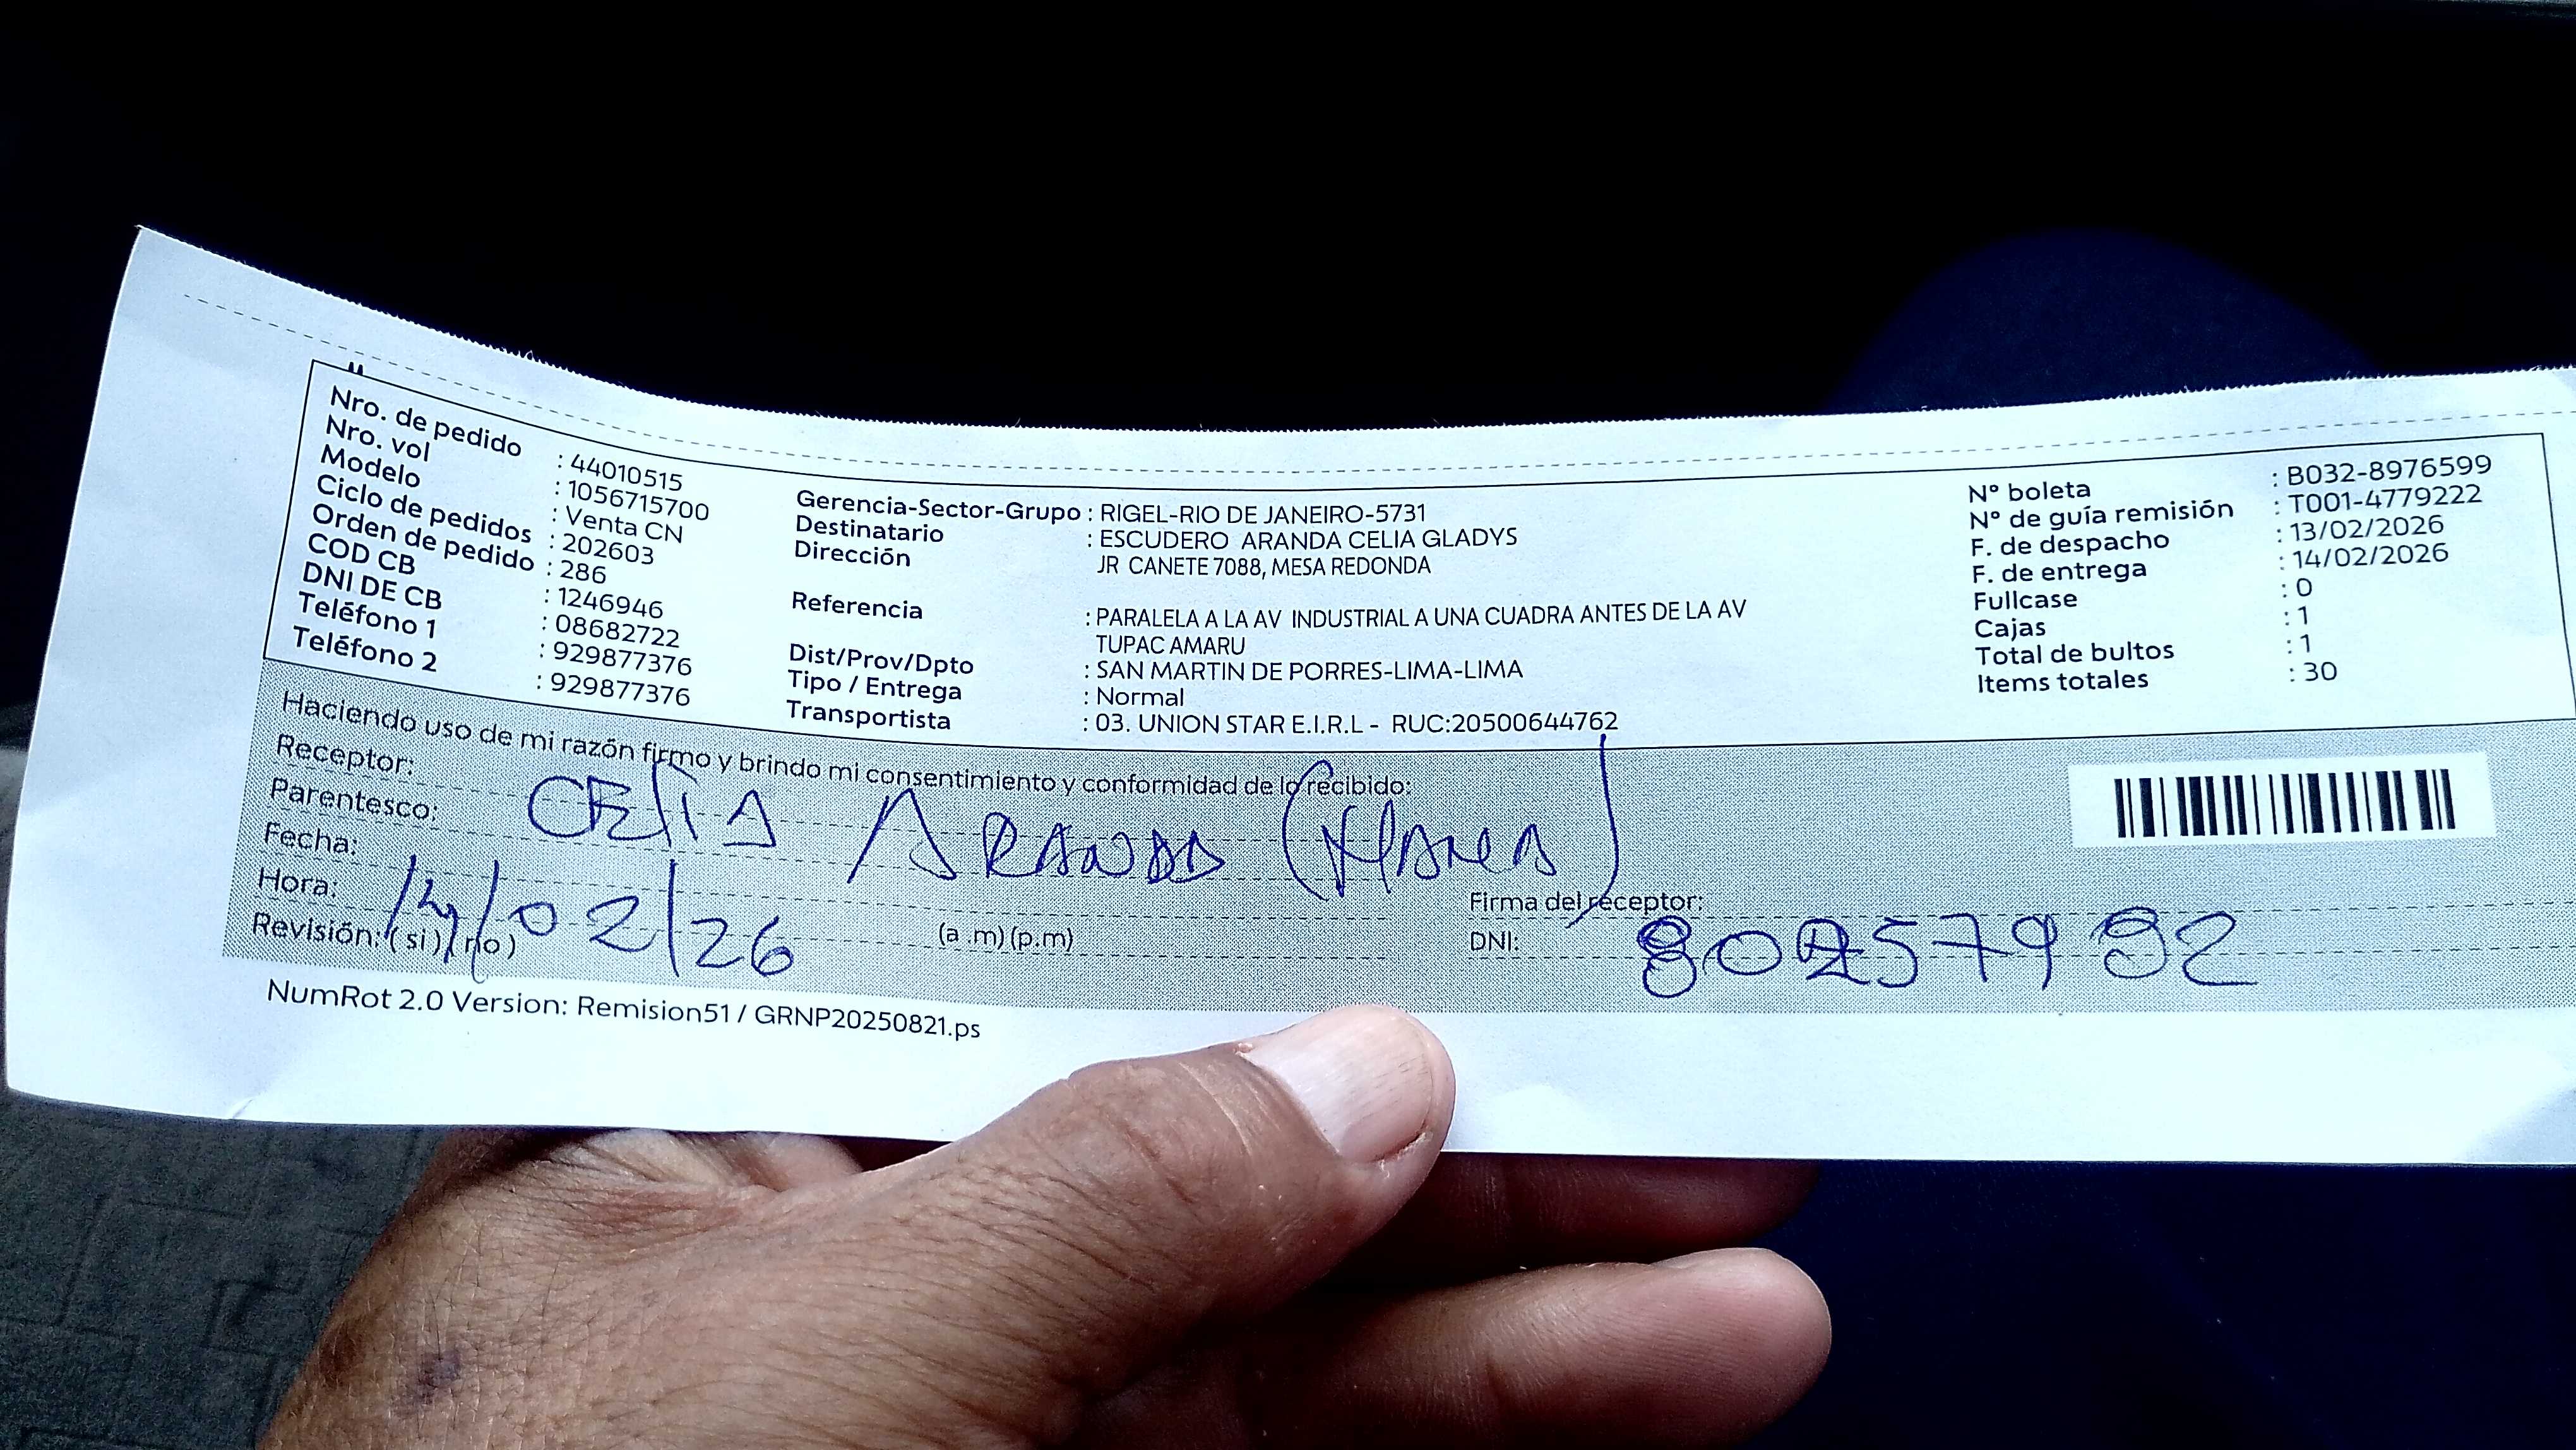 Nro. de pedido : 44010515
Nro. vol : 1056715700
Modelo : Venta CN
Ciclo de pedidos : 202603
Orden de pedido : 286
COD CB : 1246946
DNI DE CB : 08682722
Teléfono 1 : 929877376
Teléfono 2 : 929877376
Gerencia-Sector-Grupo : RIGEL-RIO DE JANEIRO-5731
Destinatario : ESCUDERO ARANDA CELIA GLADYS
Dirección JR CANETE 7088, MESA REDONDA
Referencia : PARALELA A LA AV INDUSTRIAL A UNA CUADRA ANTES DE LA AV
TUPAC AMARU
Dist/Prov/Dpto : SAN MARTIN DE PORRES-LIMA-LIMA
Tipo / Entrega : Normal
Transportista : 03. UNION STAR E.I.R.L - RUC:20500644762
N° boleta : B032-8976599
N° de guía remisión : T001-4779222
F. de despacho : 13/02/2026
F. de entrega : 14/02/2026
Fullcase : 0
Cajas : 1
Total de bultos : 1
Items totales : 30
Haciendo uso de mi razón firmo y brindo mi consentimiento y conformidad de lo recibido:
Receptor:
Parentesco: CELIA ARANDA
Fecha:
Hora: 14/02/26 (a .m) (p.m)
Revisión: ( si ) ( no )
Firma del receptor:
DNI:
NumRot 2.0 Version: Remision51 / GRNP20250821.ps